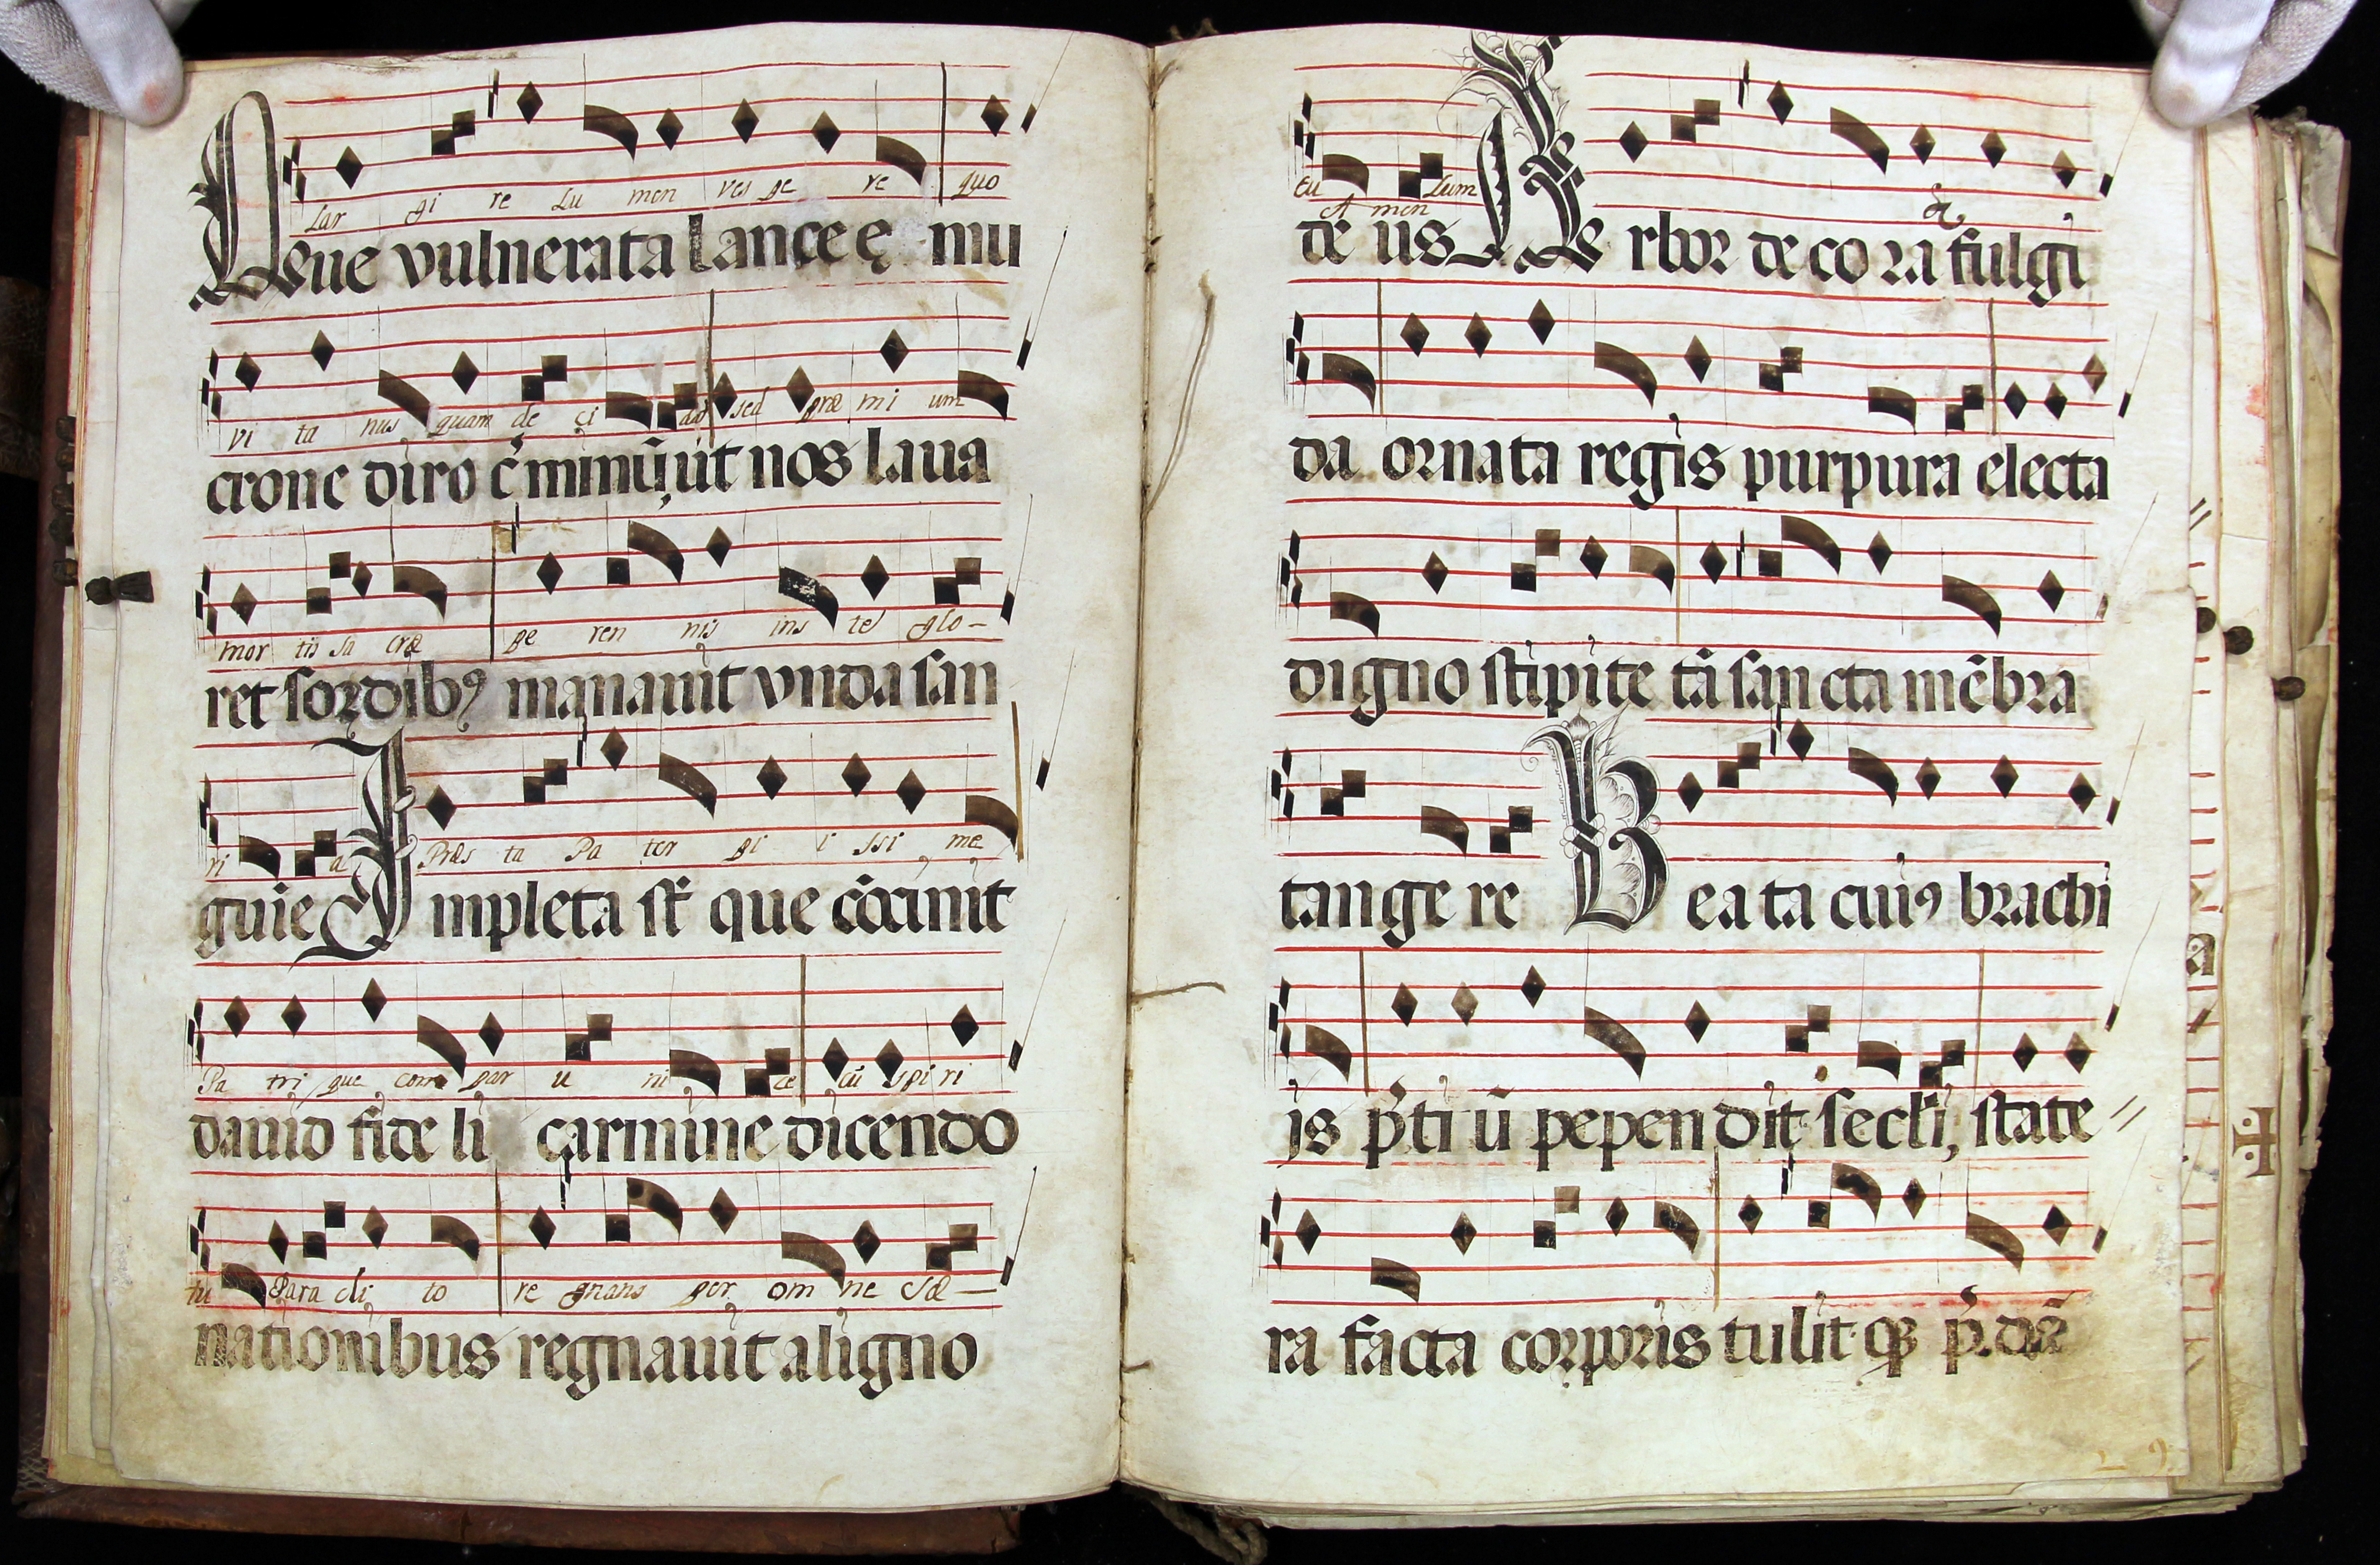 Lar gi re Lu men ves pe re quo
Que vulnerata lançeę mu
vi ta nus quam de ci dat sed præ mi um
crone diro c̄ minū, ut nos laua
mor tis sa cræ pe ren nis ins tet glo-
ret sordibꝰ manauit vnda san
ri a Præs ta Pa ter pi i ssi me
guie Impleta st̄ que cōcinit
Pa tri que com par u ni ce cū spi ri
dauid fide li carmine dicendo
tu Para cli to re gnans per om ne sæ-
nationibus regnauit aligno
cu lum
A men
de us Arbor de co ra & fulgi
da ornata regis purpura electa
digno stipite tā sancta mēbra
tange re Beata cuiꝰ brachi
js p̄ti ū pependit secl̄i, state
ra facta corporis tulit qꝫ p̄.dā